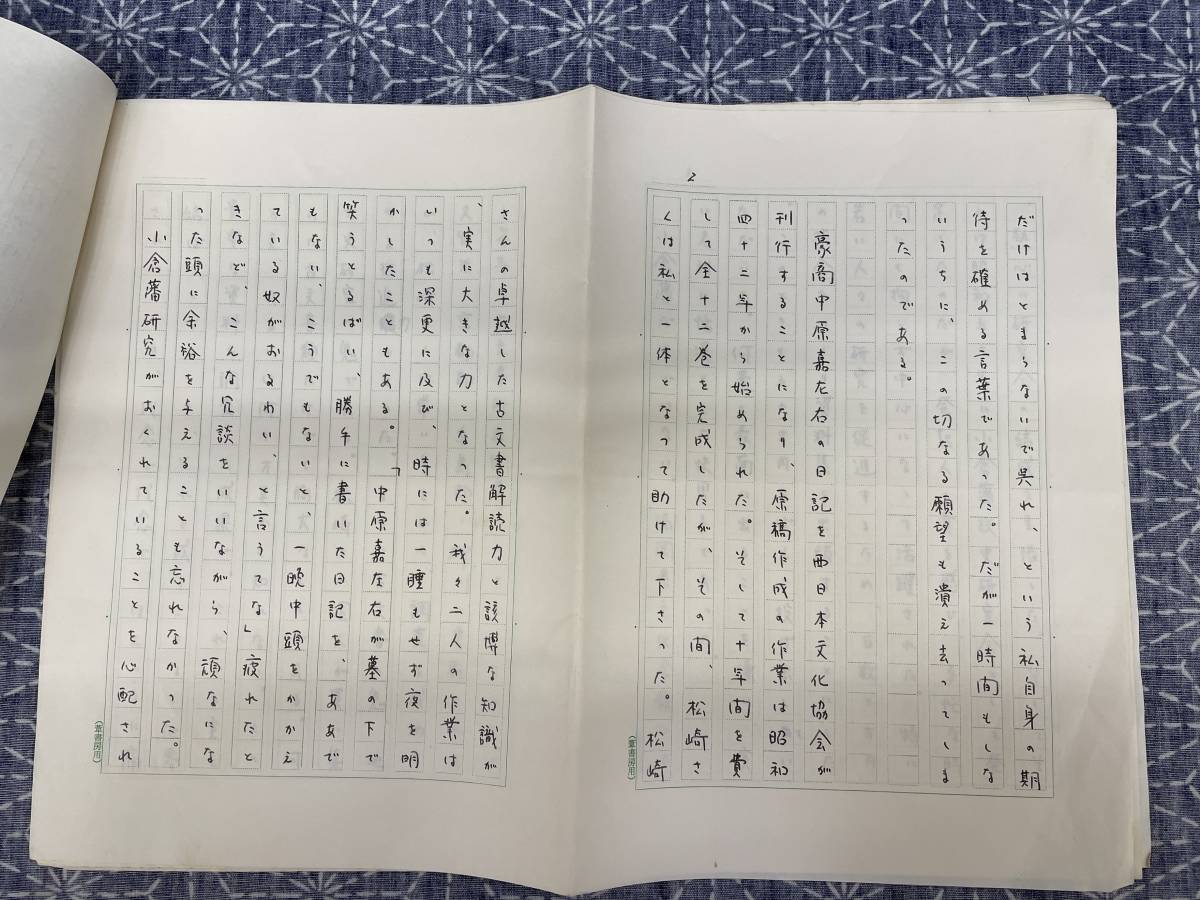 2
だけはとまらないで呉れ、という私自身の期
待を確める言葉であった。だが一時間もしな
いうちに、この切なる願望も潰え去ってしま
ったのである。
豪商中原嘉左右の日記を西日本文化協会が
刊行することになり、原稿作成の作業は昭和
四十二年から始められた。そして十年間を費
して全十二巻を完成したが、その間、松崎さ
くは私と一体となって助けて下さった。松崎
(葦書房用)
さんの卓越した古文書解読力と該博な知識が
、実に大きな力となった。我々二人の作業は
いつも深更に及び、時には一睡もせず夜を明
かしたこともある。「中原嘉左右が墓の下で
笑うとるばい、勝手に書いた日記を、ああで
もない、こうでもないと、一晩中頭をかかえ
ている奴がおるわい、と言うてな」疲れたと
きなど、こんな冗談をいいながら、頑なにな
った頭に余裕を与えることも忘れなかった。
小倉藩研究がおくれていることを心配され
(葦書房用)